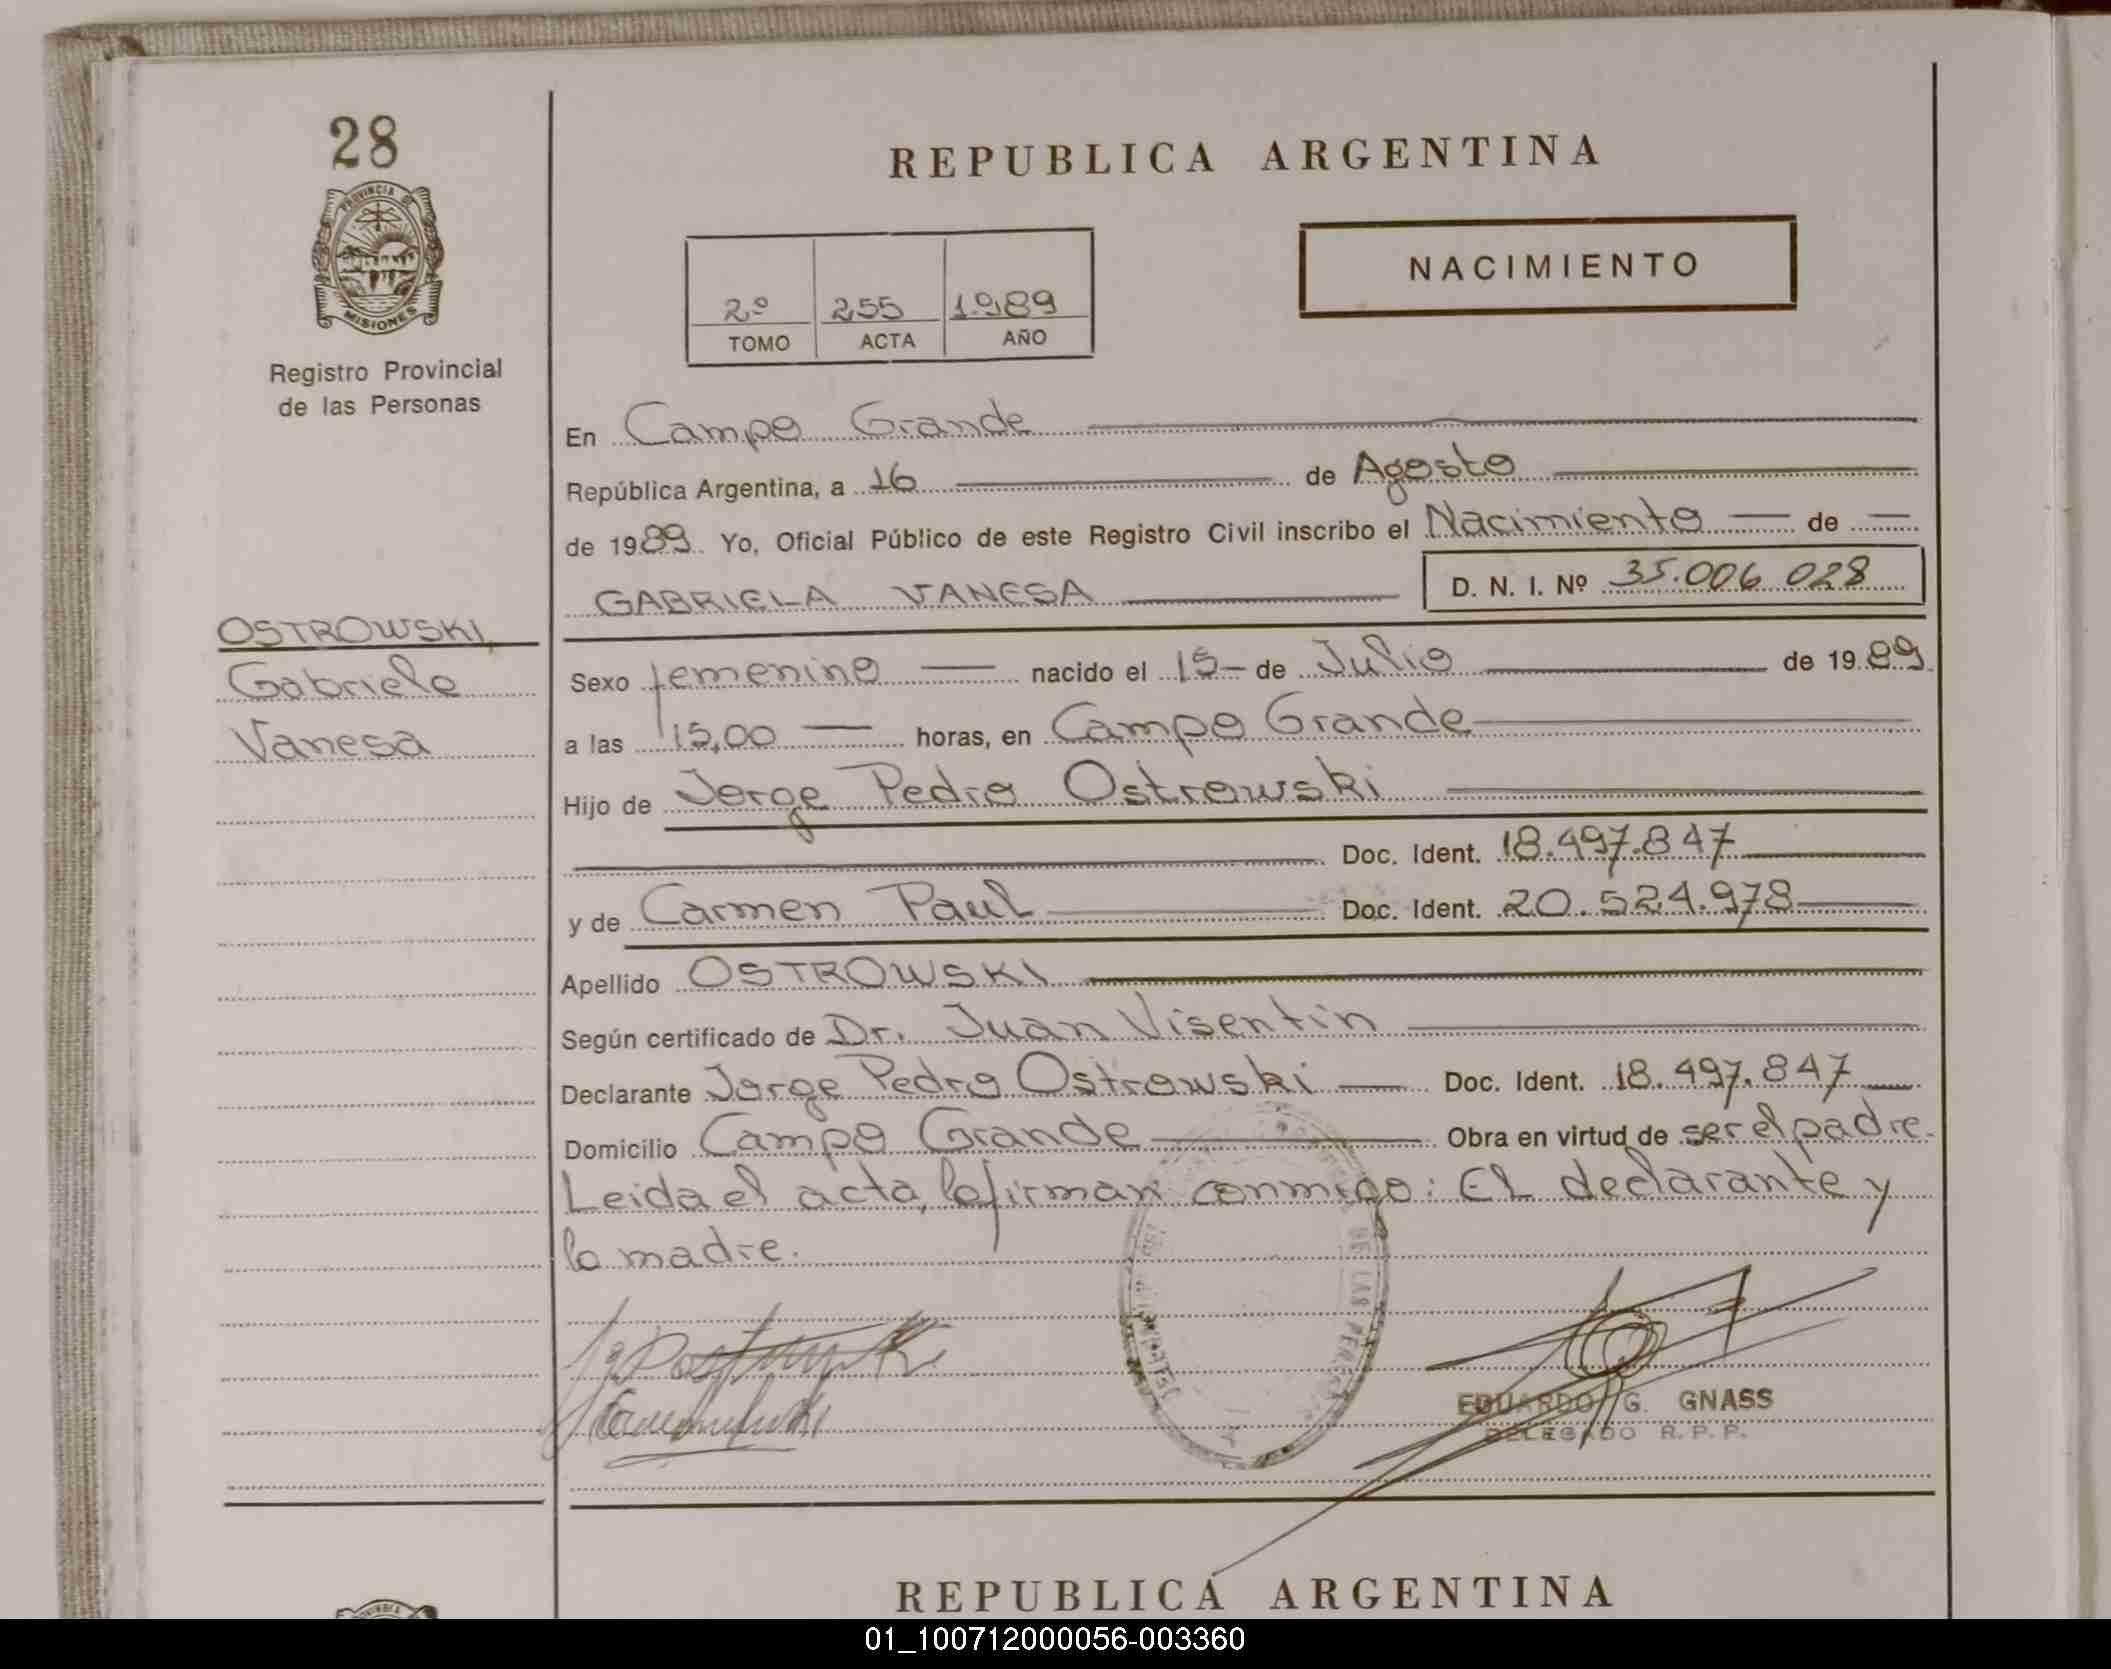 28
PROVINCIA DE
MISIONES
Registro Provincial
de las Personas
OSTROWSKI,
Gabriela
Vanesa
REPUBLICA ARGENTINA
2º 255 1.989
TOMO ACTA AÑO
NACIMIENTO
En Campo Grande
República Argentina, a 16 de Agosto
de 1989 Yo, Oficial Público de este Registro Civil inscribo el Nacimiento — de —
GABRIELA VANESA D. N. I. Nº 35.006.028
Sexo femenino — nacido el 15 — de Julio de 1989
a las 15,00 — horas, en Campo Grande
Hijo de Jorge Pedro Ostrowski
Doc. Ident. 18.497.847
y de Carmen Paul Doc. Ident. 20.524.978
Apellido OSTROWSKI
Según certificado de Dr. Juan Visentin
Declarante Jorge Pedro Ostrowski — Doc. Ident. 18.497.847
Domicilio Campo Grande Obra en virtud de ser el padre.
Leida el acta, la firman conmigo: El declarante y
la madre.
DE LAS PERSONAS
EDUARDO G. GNASS
DELEGADO R. P. P.
REPUBLICA ARGENTINA
01_100712000056-003360